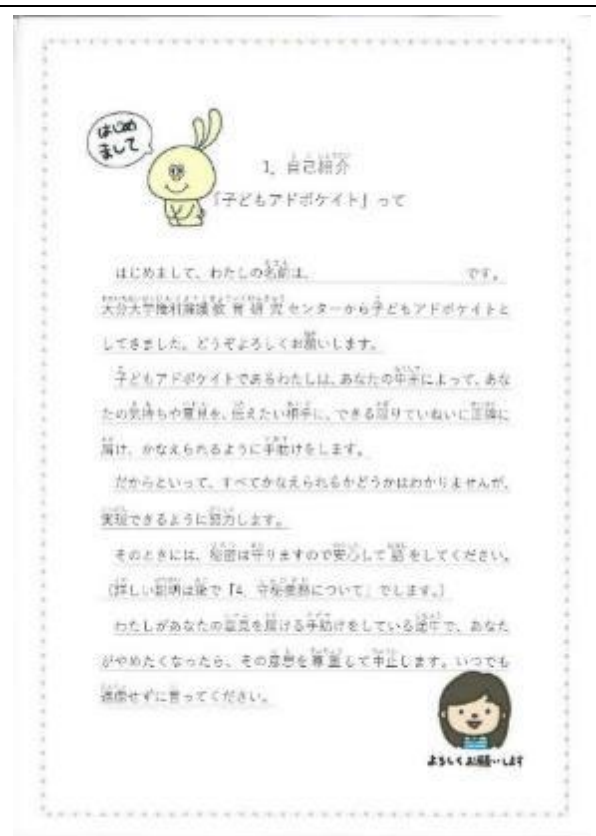 はじめ
まして
1．自己紹介
「子どもアドボケイト」って
はじめまして、わたしの名前は、　　　　　　です。
大分大学権利擁護教育研究センターから子どもアドボケイトと
してきました。どうぞよろしくお願いします。
子どもアドボケイトであるわたしは、あなたの申出によって、あな
たの気持ちや意見を、伝えたい相手に、できる限りていねいに正確に
届け、かなえられるように手助けをします。
だからといって、すべてかなえられるかどうかはわかりませんが、
実現できるように努力します。
そのときには、秘密は守りますので安心して話をしてください。
（詳しい説明は後で「4．守秘義務について」でします。）
わたしがあなたの意見を届ける手助けをしている途中で、あなた
がやめたくなったら、その意思を尊重して中止します。いつでも
遠慮せずに言ってください。
よろしくお願いします